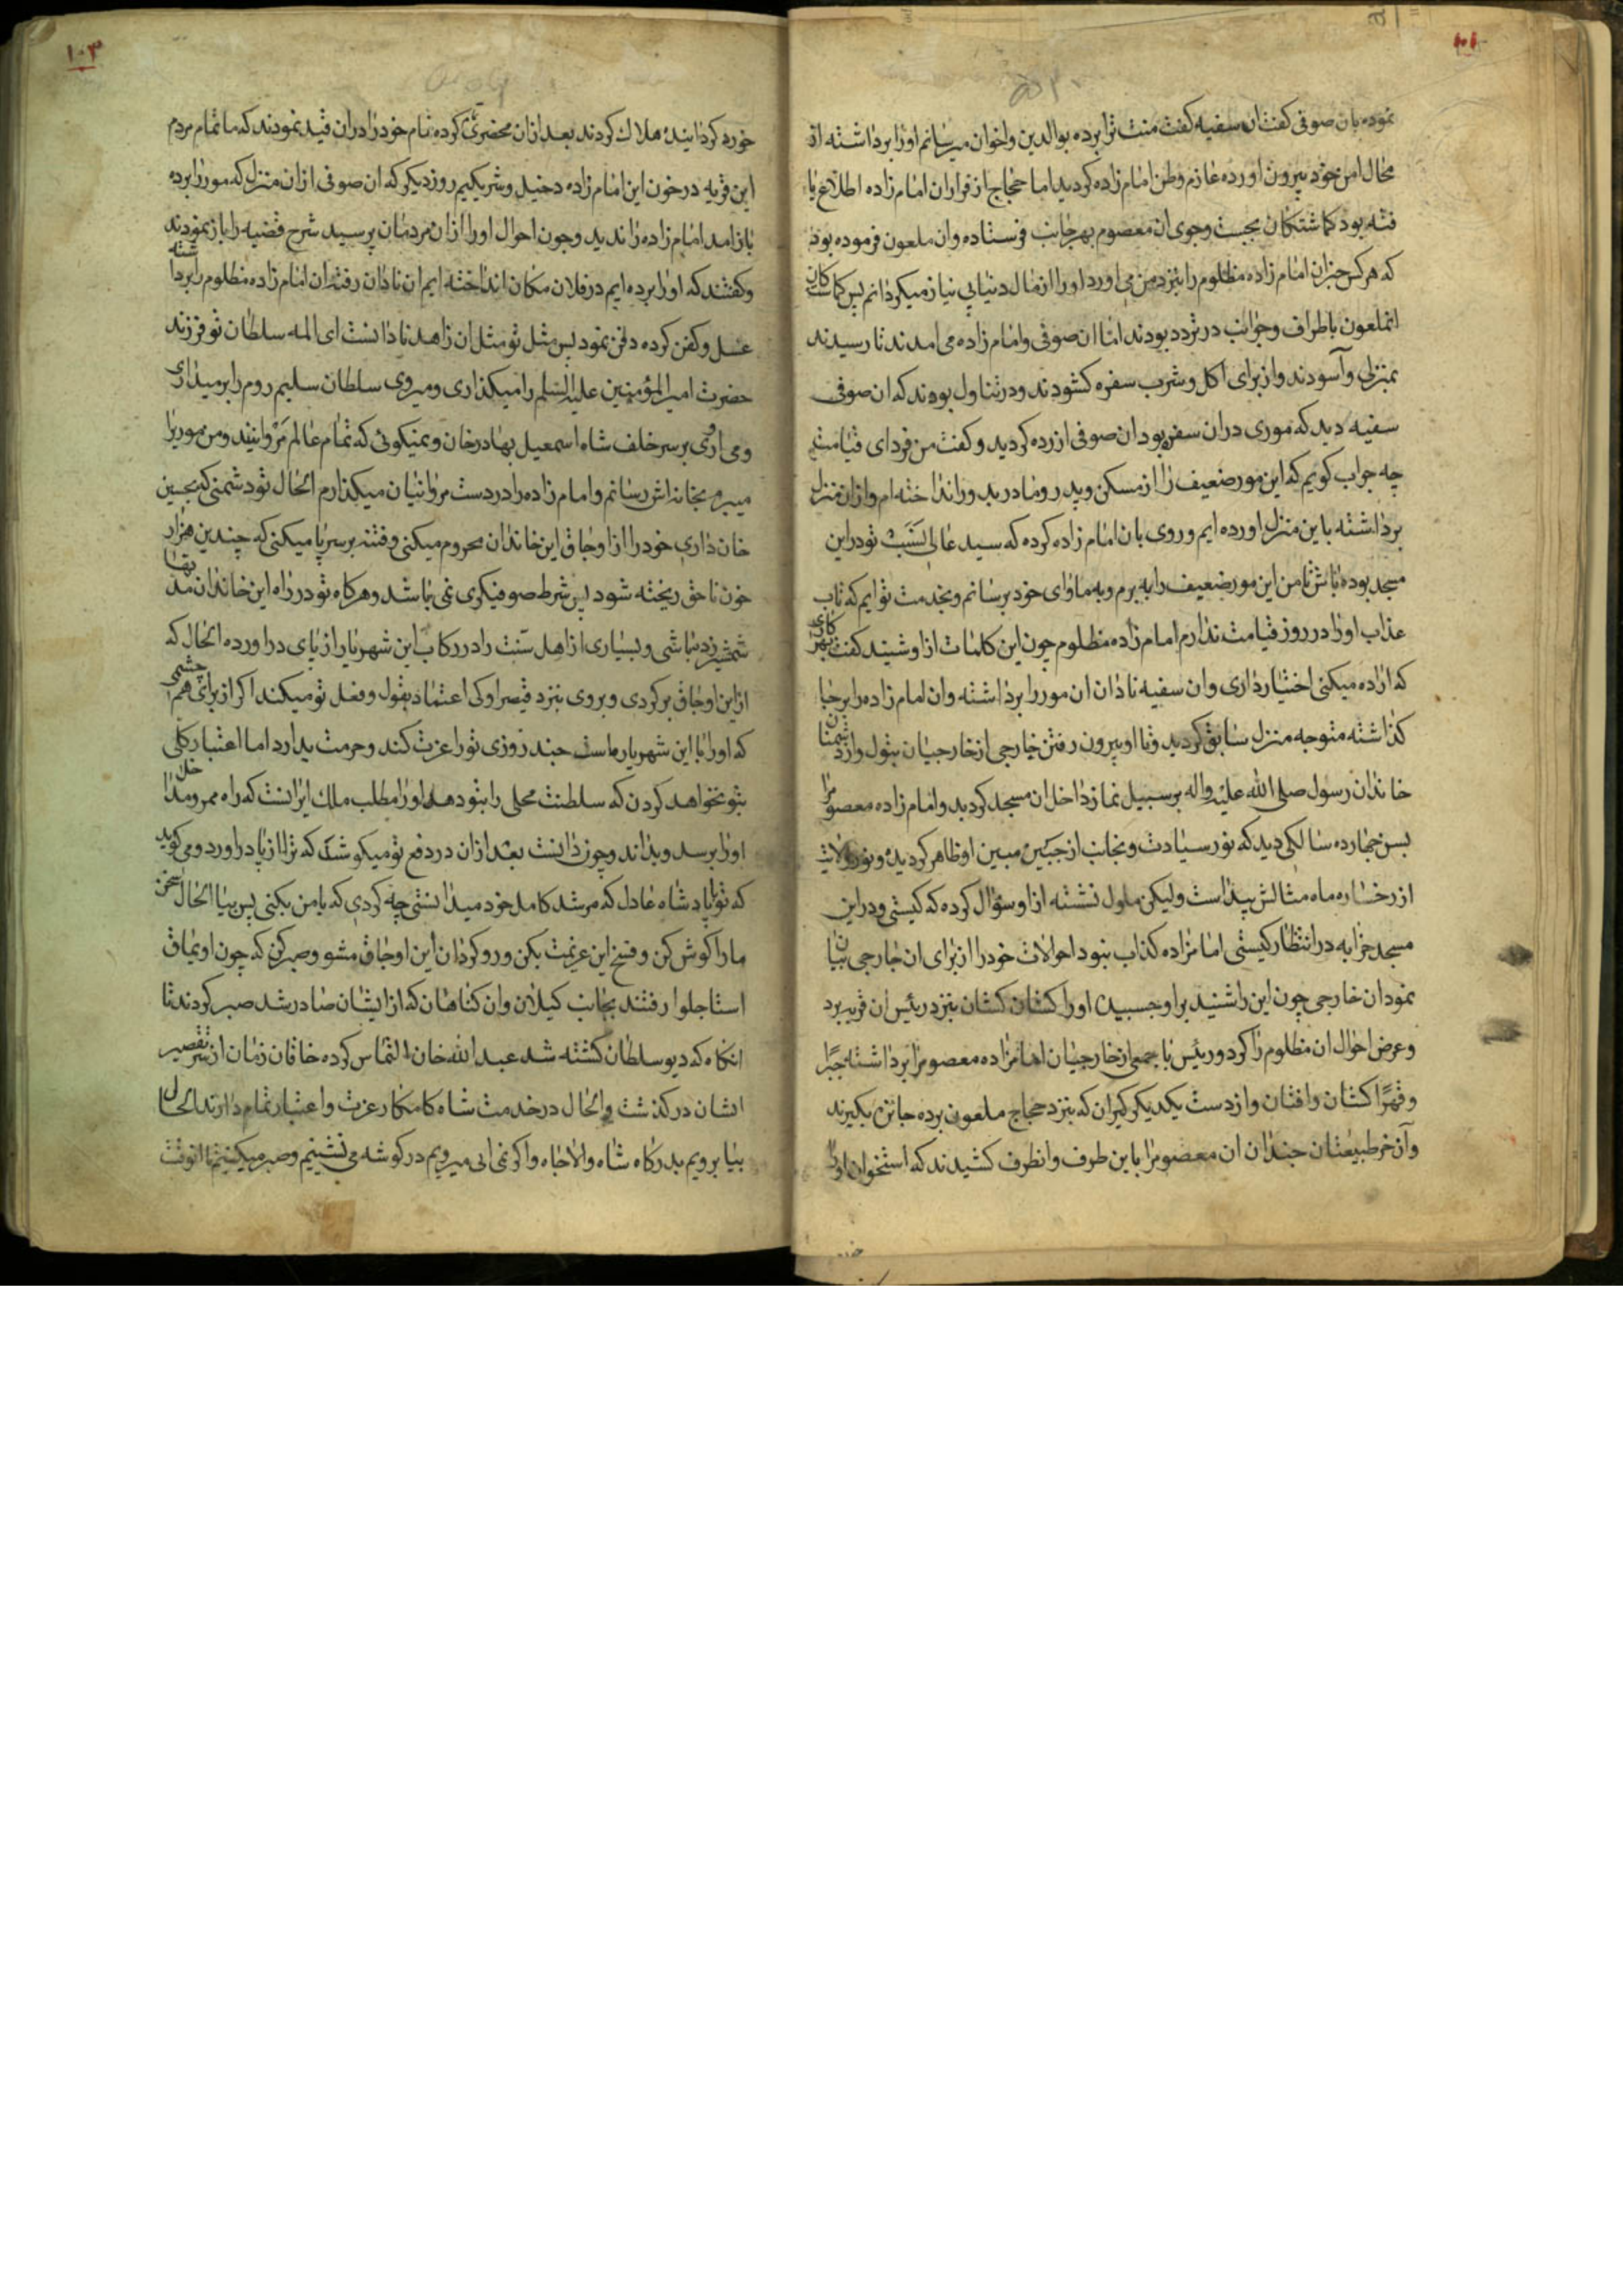 ۱۰۲
نموده بان صوفی کفت ان سفیه کفت منت ترا برده بوالدین واخوان میرسانم اورا برداشته از
محال امن خود بیرون اورده عازم وطن امام زاده کردید اما حجاج از فراران امام زاده اطلاع یا
فته بود کماشتکان بجست وجوی ان معصوم بهر جانب فرستاده وان ملعون فرموده بود
که هرکس خبر ان امام زاده مظلوم را بنزد من می اورد اورا از مال دنیا بی نیاز میکردانم پس کماشتکان
انملعون باطراف وجوانب در تردد بودند اما ان صوفی وامام زاده می امدند تا رسیدند
بمنزلی وآسودند واز برای اکل وشرب سفره کشودند ودر تناول بودند که ان صوفی
سفیه دید که موری در ان سفره بود ان صوفی ازرده کردید وکفت من فردای قیامت
چه جواب کویم که این مور ضعیف را از مسکن وپدر ومادر بدور انداخته ام واز ان منزل
برداشته باین منزل اورده ایم وروی بان امام زاده کرده که سید عالی نسب تو در این
مسجد بوده باش تا من این مور ضعیف را به برم وبه ماوای خود برسانم وبخدمت تو ایم که تاب
عذاب اورا در روز قیامت ندارم امام زاده مظلوم چون این کلمات از او شنید کفت بهر کاری
که اراده میکنی اختیار داری وان سفیه نادان ان مور را برداشته وان امام زاده را بر جا
کذاشته متوجه منزل سابق کردید وتا او بیرون رفتن خارجی از خارجیان بتول واز دشمنان
خاندان رسول صلی الله علیه واله بر سبیل نماز داخل ان مسجد کردید وامام زاده معصوم را
بسن چهارده سالکی دید که نور سیادت ونجابت از جبین مبین او ظاهر کردیده ونور ولایت
از رخساره ماه مثالش پیداست ولیکن ملول نشسته از او سؤال کرده که کیستی ودر این
مسجد خرابه در انتظار کیستی امامزاده کذاب بنود احوالات خودرا از برای ان خارجی بیان
نمود ان خارجی چون این را شنید بر او چسبیده اورا کشان کشان بنزد رئیس ان قریه برد
وعرض احوال ان مظلوم را کرد ورئیس با جمعی از خارجیان امامزاده معصوم را برداشته جبرًا
وقهرًا کشان وافتان واز دست یکدیکر کیران که بنزد حجاج ملعون برده جائزه بکیرند
وآن خر طبیعتان چندان ان معصوم را باین طرف وانطرف کشیدند که استخوان اورا
۱۰۳
خورد کردانیده هلاک کردند بعد از ان محضری کرده نام خودرا در ان قید نمودند که ما تمام مردم
این قریه در خون این امام زاده دخیل وشریکیم روز دیکر که ان صوفی از ان منزل که مور را برده
باز امد امام زاده را ندید وچون احوال اورا از ان مردمان پرسید شرح قضیه را باز نمودند
وکفتند که اورا برده ایم در فلان مکان انداخته ایم ان نادان رفته ان امام زاده مظلوم را برداشته
غسل وکفن کرده دفن نمود پس مثل تو مثل ان زاهد نادانست ای المه سلطان تو فرزند
حضرت امیر المؤمنین علیه السلم را میکذاری ومیروی سلطان سلیم روم را بر میداری
ومی اوری بر سر خلف شاه اسمعیل بهادر خان ومیکوئی که تمام عالم مروانیند ومن مور را
میبرم بخانه اش رسانم وامام زاده را در دست مروانیان میکذارم الحال تو دشمنی که بحسین
خان داری خودرا از اوجاق این خاندان محروم میکنی وفتنه بر سر پا میکنی که چندین هزار
خون ناحق ریخته شود پس شرط صوفیکری نمی باشد وهرکاه تو در راه این خاندان مدتها
شمشیر زده باشی وبسیاری از اهل سنت را در رکاب این شهریار از پای در اورده الحال که
از این اوجاق بر کردی وبروی بنزد قیصر او کی اعتماد بقول وفعل تو میکند اکر از برای هم چشمی
که اورا با این شهریار ماست چند روزی تورا عزت کند وحرمت بدارد اما اعتبار کلی
بتو نخواهد کردن که سلطنت محلی را بتو دهد اورا مطلب ملک ایرانست که راه ممر ومداخل
اورا برسد وبداند وچون دانست بعد از ان در دفع تو میکوشد که ترا از پا در اورد ومی کوید
که تو با پادشاه عادل که مرشد کامل خود میدانستی چه کردی که با من بکنی پس بیا الحال سخن
مارا کوش کن وفسخ این عزیمت بکن ورو کردان این اوجاق مشو وصبر کن که چون اویماق
استاجلوا رفتند بجانب کیلان وان کناهان که از ایشان صادر شد صبر کردند تا
انکاه که دیو سلطان کشته شد عبد الله خان التماس کرده خاقان زمان از سر تقصیر
ایشان در کذشت والحال در خدمت شاه کامکار عزت واعتبار تمام دارند الحال
بیا برویم بدرکاه شاه والاجاه واکر نمی ائی میرویم در کوشه می نشینیم وصبر میکنیم تا انوقت